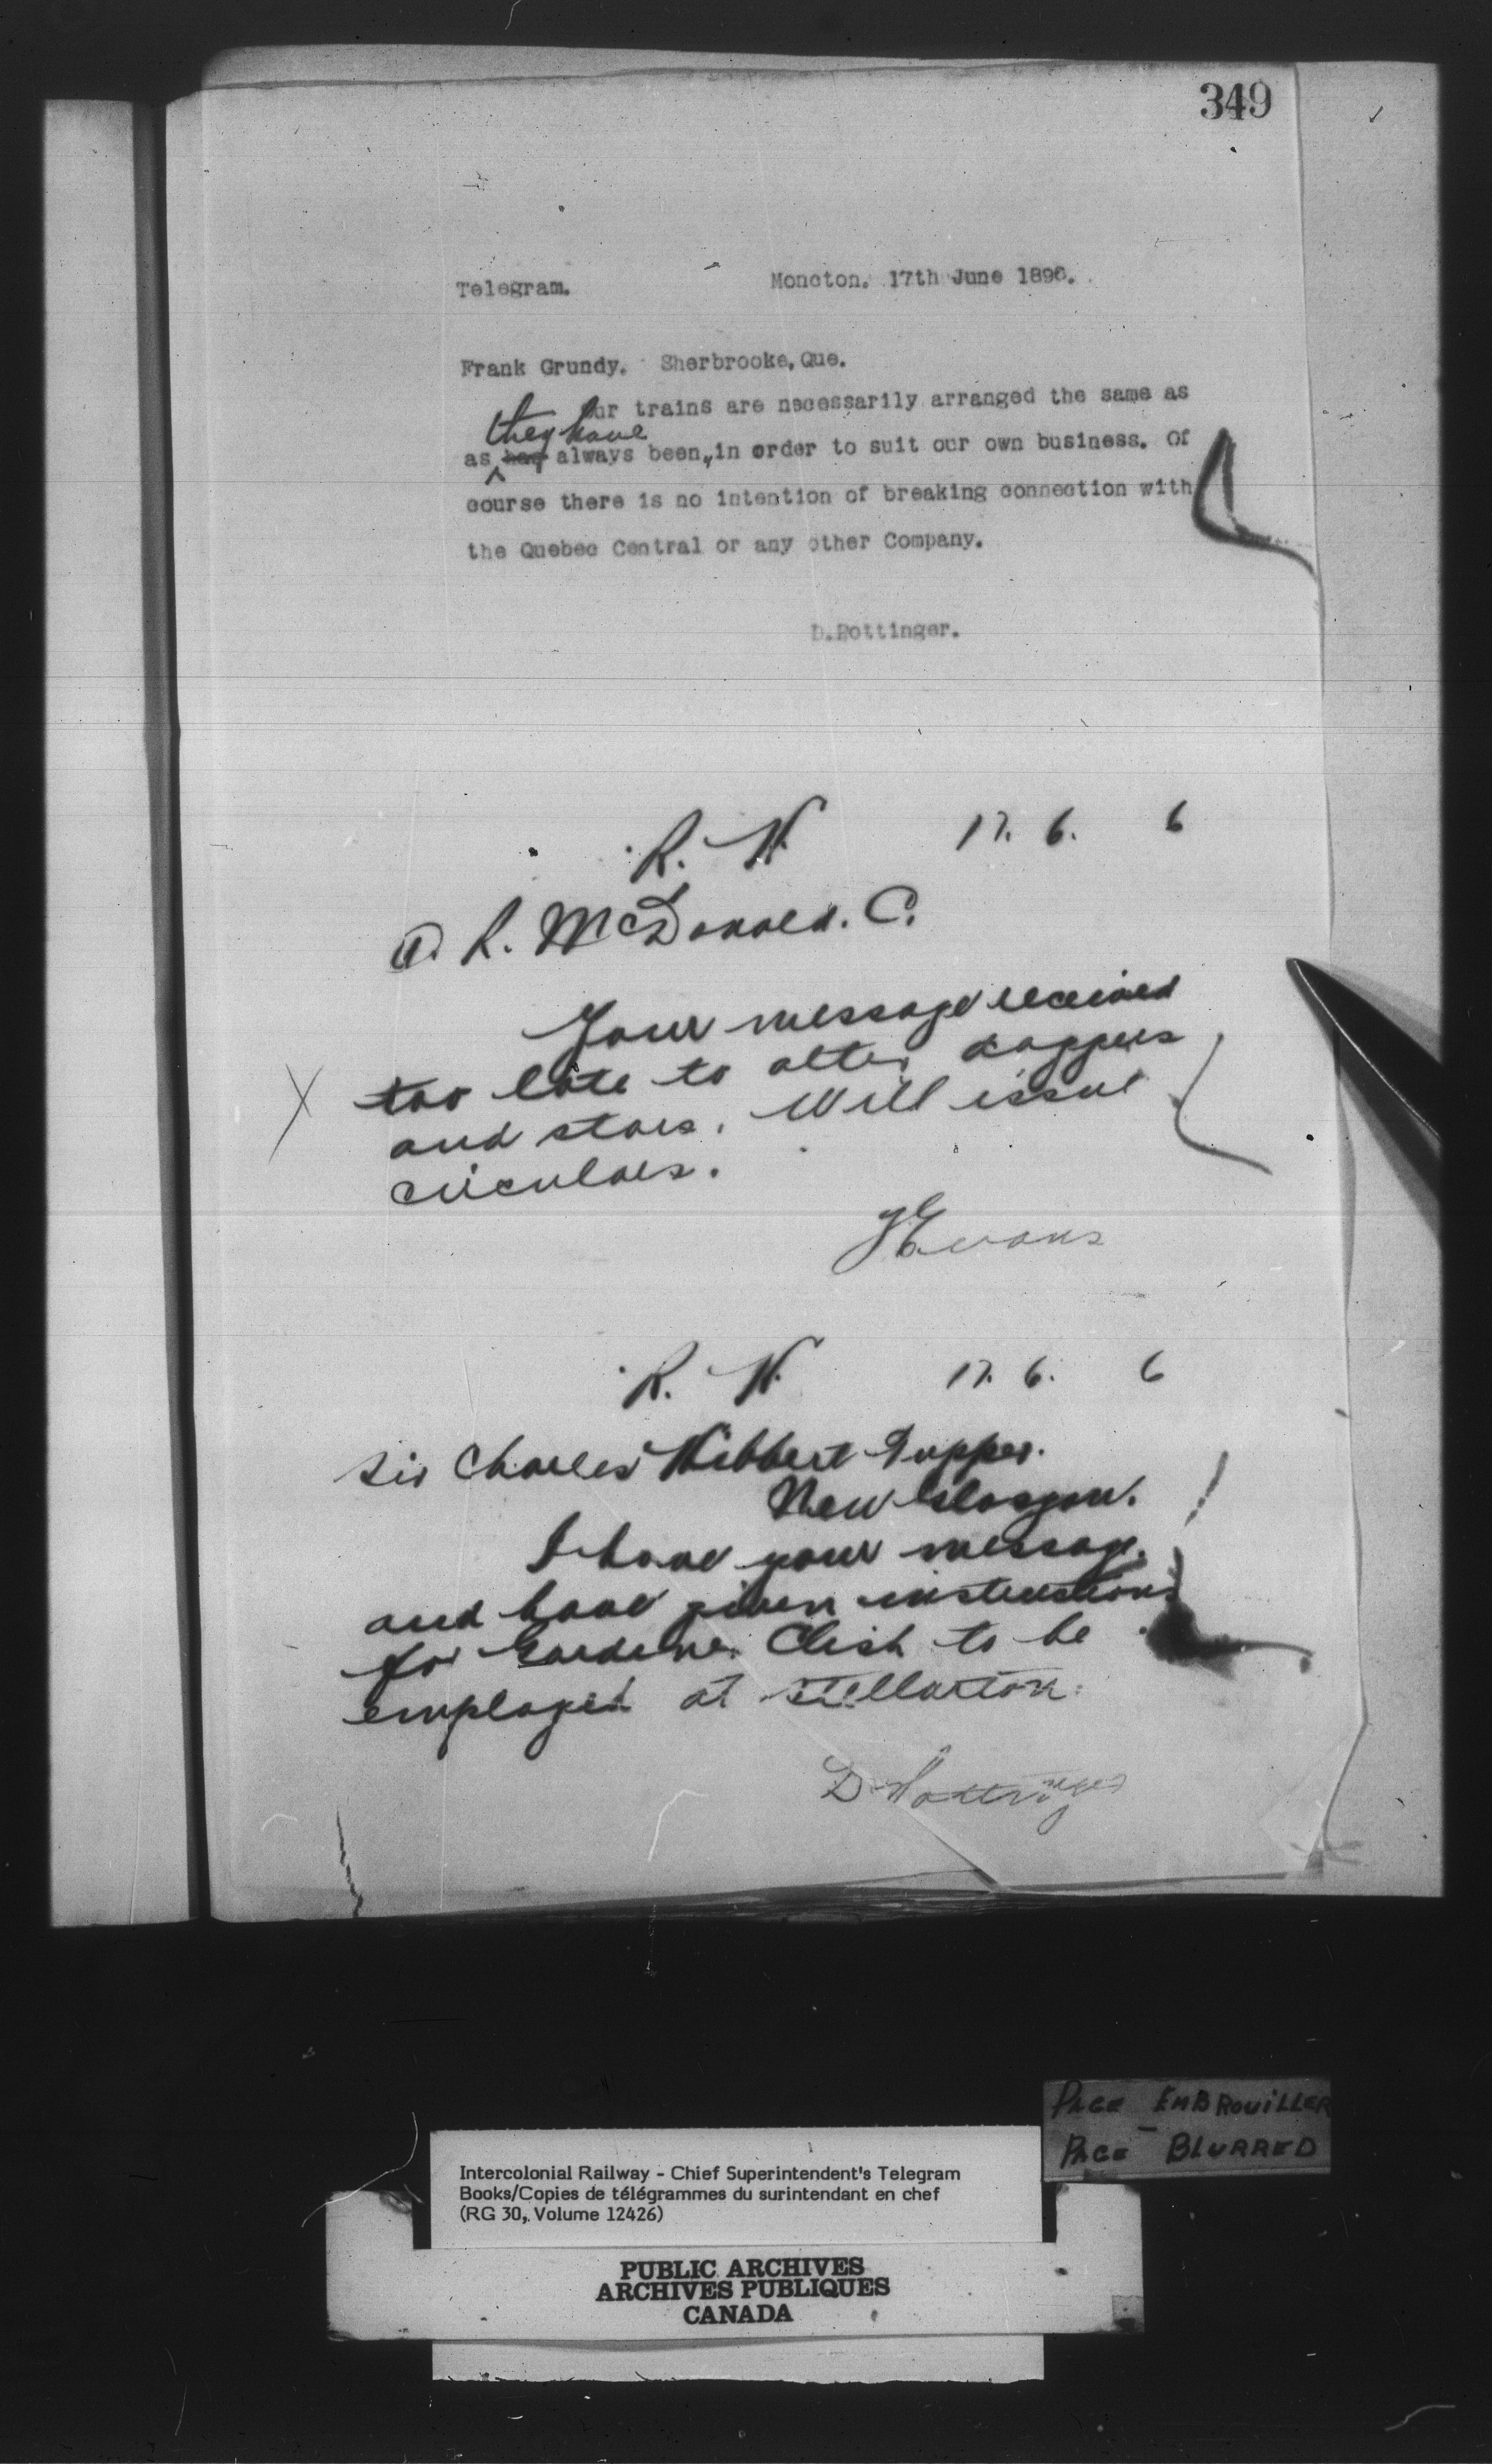 349
Telegram. Moncton. 17th June 1896.
Frank Grundy. Sherbrooke, Que.
Our trains are necessarily arranged the same as
they have
as always been, in order to suit our own business. Of
course there is no intention of breaking connection with
the Quebec Central or any other Company.
D. Pottinger.
R. N. 17. 6. 6
A. R. McDonald. C.
Your message received
too late to alter daggers
and stars. Will issue
circulars.
J Evans
R. N. 17. 6. 6
Sir Charles Hibbert Tupper.
New Glasgow.
I have your message.
and have given instructions
for Gardener Clish to be
employed at Stellarton.
D Pottinger
PAGE EMBROUILLER
PAGE BLURRED
Intercolonial Railway - Chief Superintendent's Telegram
Books/Copies de télégrammes du surintendant en chef
(RG 30, Volume 12426)
PUBLIC ARCHIVES
ARCHIVES PUBLIQUES
CANADA